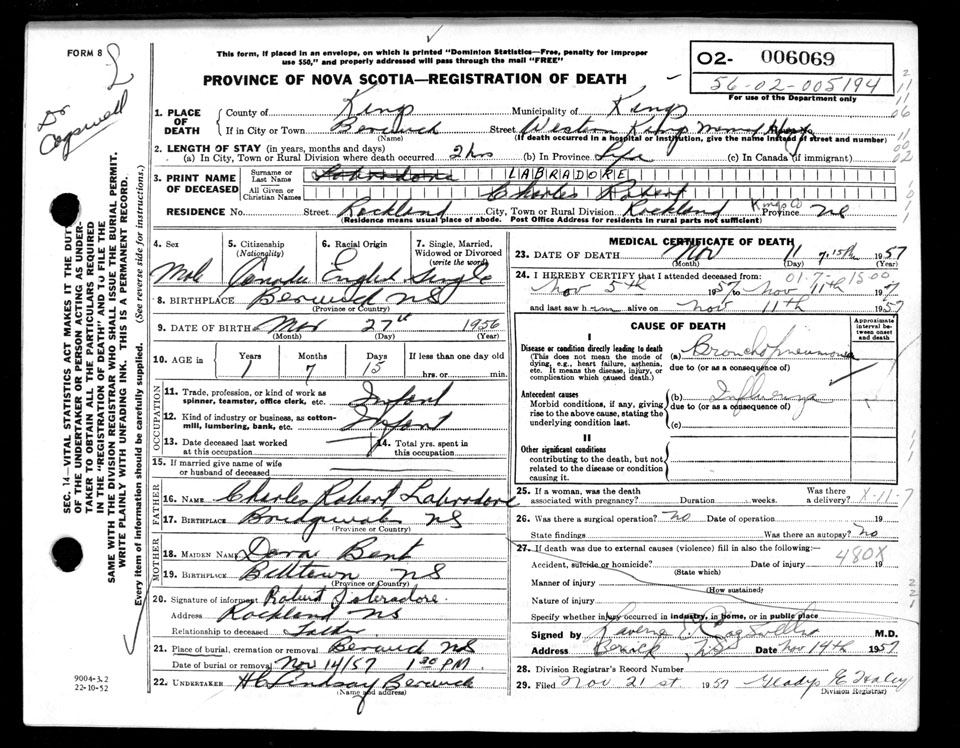 FORM 8
2
Dr
Cogswell
This form, if placed in an envelope, on which is printed "Dominion Statistics—Free, penalty for improper
use $50," and properly addressed will pass through the mail "FREE"
PROVINCE OF NOVA SCOTIA—REGISTRATION OF DEATH
02- 006069
56-02-005194
For use of the Department only
1. PLACE OF DEATH
County of Kings Municipality of Kings
If in City or Town Berwick Street Western Kings Mem Hosp
(Name) (If death occurred in a hospital or institution, give the name instead of street and number)
2. LENGTH OF STAY (in years, months and days)
(a) In City, Town or Rural Division where death occurred 2 hrs (b) In Province Life (c) In Canada (if immigrant)
3. PRINT NAME OF DECEASED
Surname or Last Name Labradore LABRADORE
All Given or Christian Names Charles Robert
RESIDENCE No. Street Rockland City, Town or Rural Division Rockland Kings Co Province NS
(Residence means usual place of abode. Post Office Address for residents in rural parts not sufficient)
4. Sex 5. Citizenship (Nationality) 6. Racial Origin 7. Single, Married, Widowed or Divorced (write the word)
Male Canadian English Single
8. BIRTHPLACE Berwick NS
(Province or Country)
9. DATE OF BIRTH Mar 27th 1956
(Month) (Day) (Year)
10. AGE in Years Months Days If less than one day old
1 7 15 hrs. or min.
OCCUPATION
11. Trade, profession, or kind of work as spinner, teamster, office clerk, etc. Infant
12. Kind of industry or business, as cotton-mill, lumbering, bank, etc. Infant
13. Date deceased last worked at this occupation 14. Total yrs. spent in this occupation
15. If married give name of wife or husband of deceased
FATHER
16. NAME Charles Robert Labradore
17. BIRTHPLACE Bridgewater NS
(Province or Country)
MOTHER
18. MAIDEN NAME Bent
19. BIRTHPLACE Billtown NS
(Province or Country)
20. Signature of informant Robert
Address Rockland NS
Relationship to deceased Father
21. Place of burial, cremation or removal Berwick NS
Date of burial or removal Nov 14/57 1 30 PM
22. UNDERTAKER H C Lindsay Berwick
(Name and address)
MEDICAL CERTIFICATE OF DEATH
23. DATE OF DEATH Nov 11 1957
(Month) (Day) (Year)
24. I HEREBY CERTIFY that I attended deceased from:
01-7-01500
Nov 5th 1957 to Nov 11th 1957
and last saw him alive on Nov 11th 1957
CAUSE OF DEATH
Approximate interval between onset and death
I
Disease or condition directly leading to death
(This does not mean the mode of dying, e.g., heart failure, asthenia, etc. It means the disease, injury, or complication which caused death.)
(a) Bronchopneumonia
due to (or as a consequence of)
Antecedent causes
Morbid conditions, if any, giving rise to the above cause, stating the underlying condition last.
(b) Influenza
due to (or as a consequence of)
(c)
II
Other significant conditions
contributing to the death, but not related to the disease or condition causing it.
25. If a woman, was the death associated with pregnancy? Duration weeks. Was there a delivery? X-11-7
26. Was there a surgical operation? no Date of operation 19
State findings Was there an autopsy? No
27. If death was due to external causes (violence) fill in also the following:—
480X
Accident, suicide or homicide? Date of injury 19
(State which)
Manner of injury
(How sustained)
Nature of injury
Specify whether injury occurred in industry, in home, or in public place
Signed by Laverne C Cogswell M.D.
Address Berwick NS Date Nov 14th 1957
28. Division Registrar's Record Number
29. Filed Nov. 21 st. 1957 Gladys E Haley
Division Registrar)
SEC. 14—VITAL STATISTICS ACT MAKES IT THE DUTY
OF THE UNDERTAKER OR PERSON ACTING AS UNDER-
TAKER TO OBTAIN ALL THE PARTICULARS REQUIRED
IN THE "REGISTRATION OF DEATH" AND TO FILE THE
SAME WITH THE DIVISION REGISTRAR WHO SHALL ISSUE THE BURIAL PERMIT.
WRITE PLAINLY WITH UNFADING INK. THIS IS A PERMANENT RECORD.
Every item of information should be carefully supplied. (See reverse side for instructions.)
9004-3.2
22-10-52